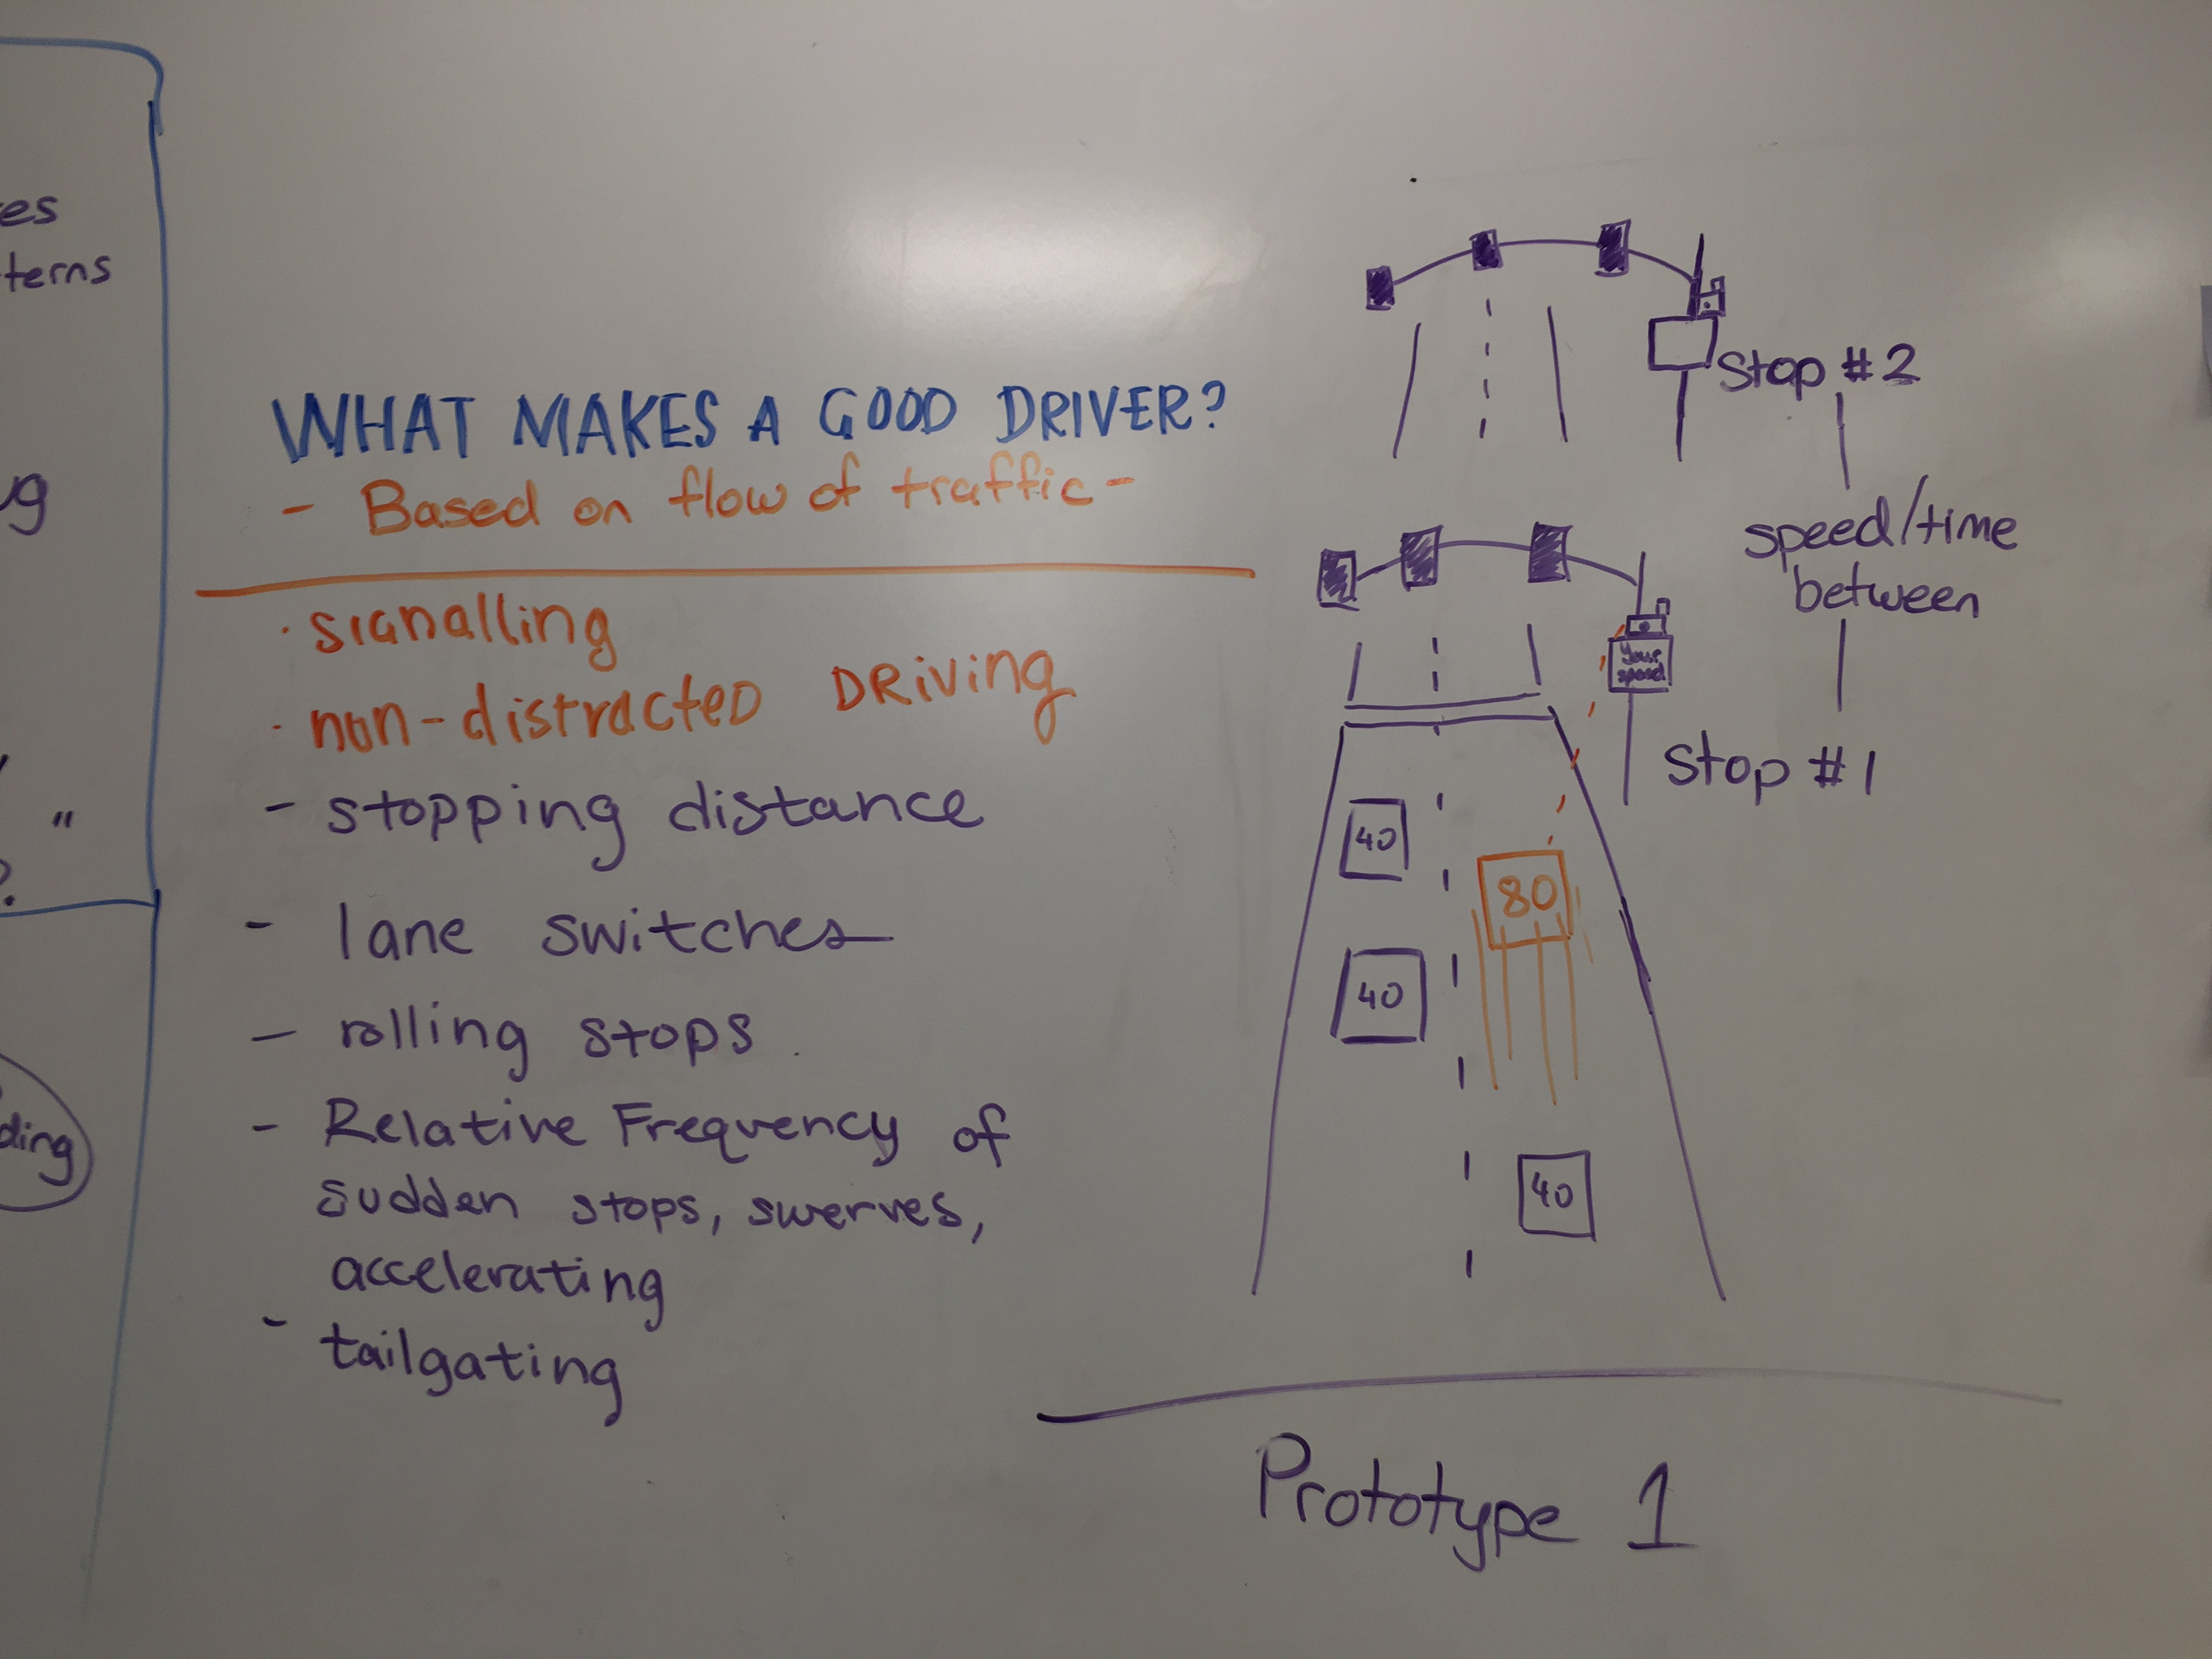 es
terns
g
"
ding
WHAT MAKES A GOOD DRIVER?
- Based on flow of traffic -
· signalling
· non-distracted DRiving
- stopping distance
- lane switches
- rolling stops.
- Relative Frequency of
sudden stops, swerves,
accelerating
- tailgating
Stop #2
speed/time
between
Your
speed
Stop #1
40
80
40
40
Prototype 1